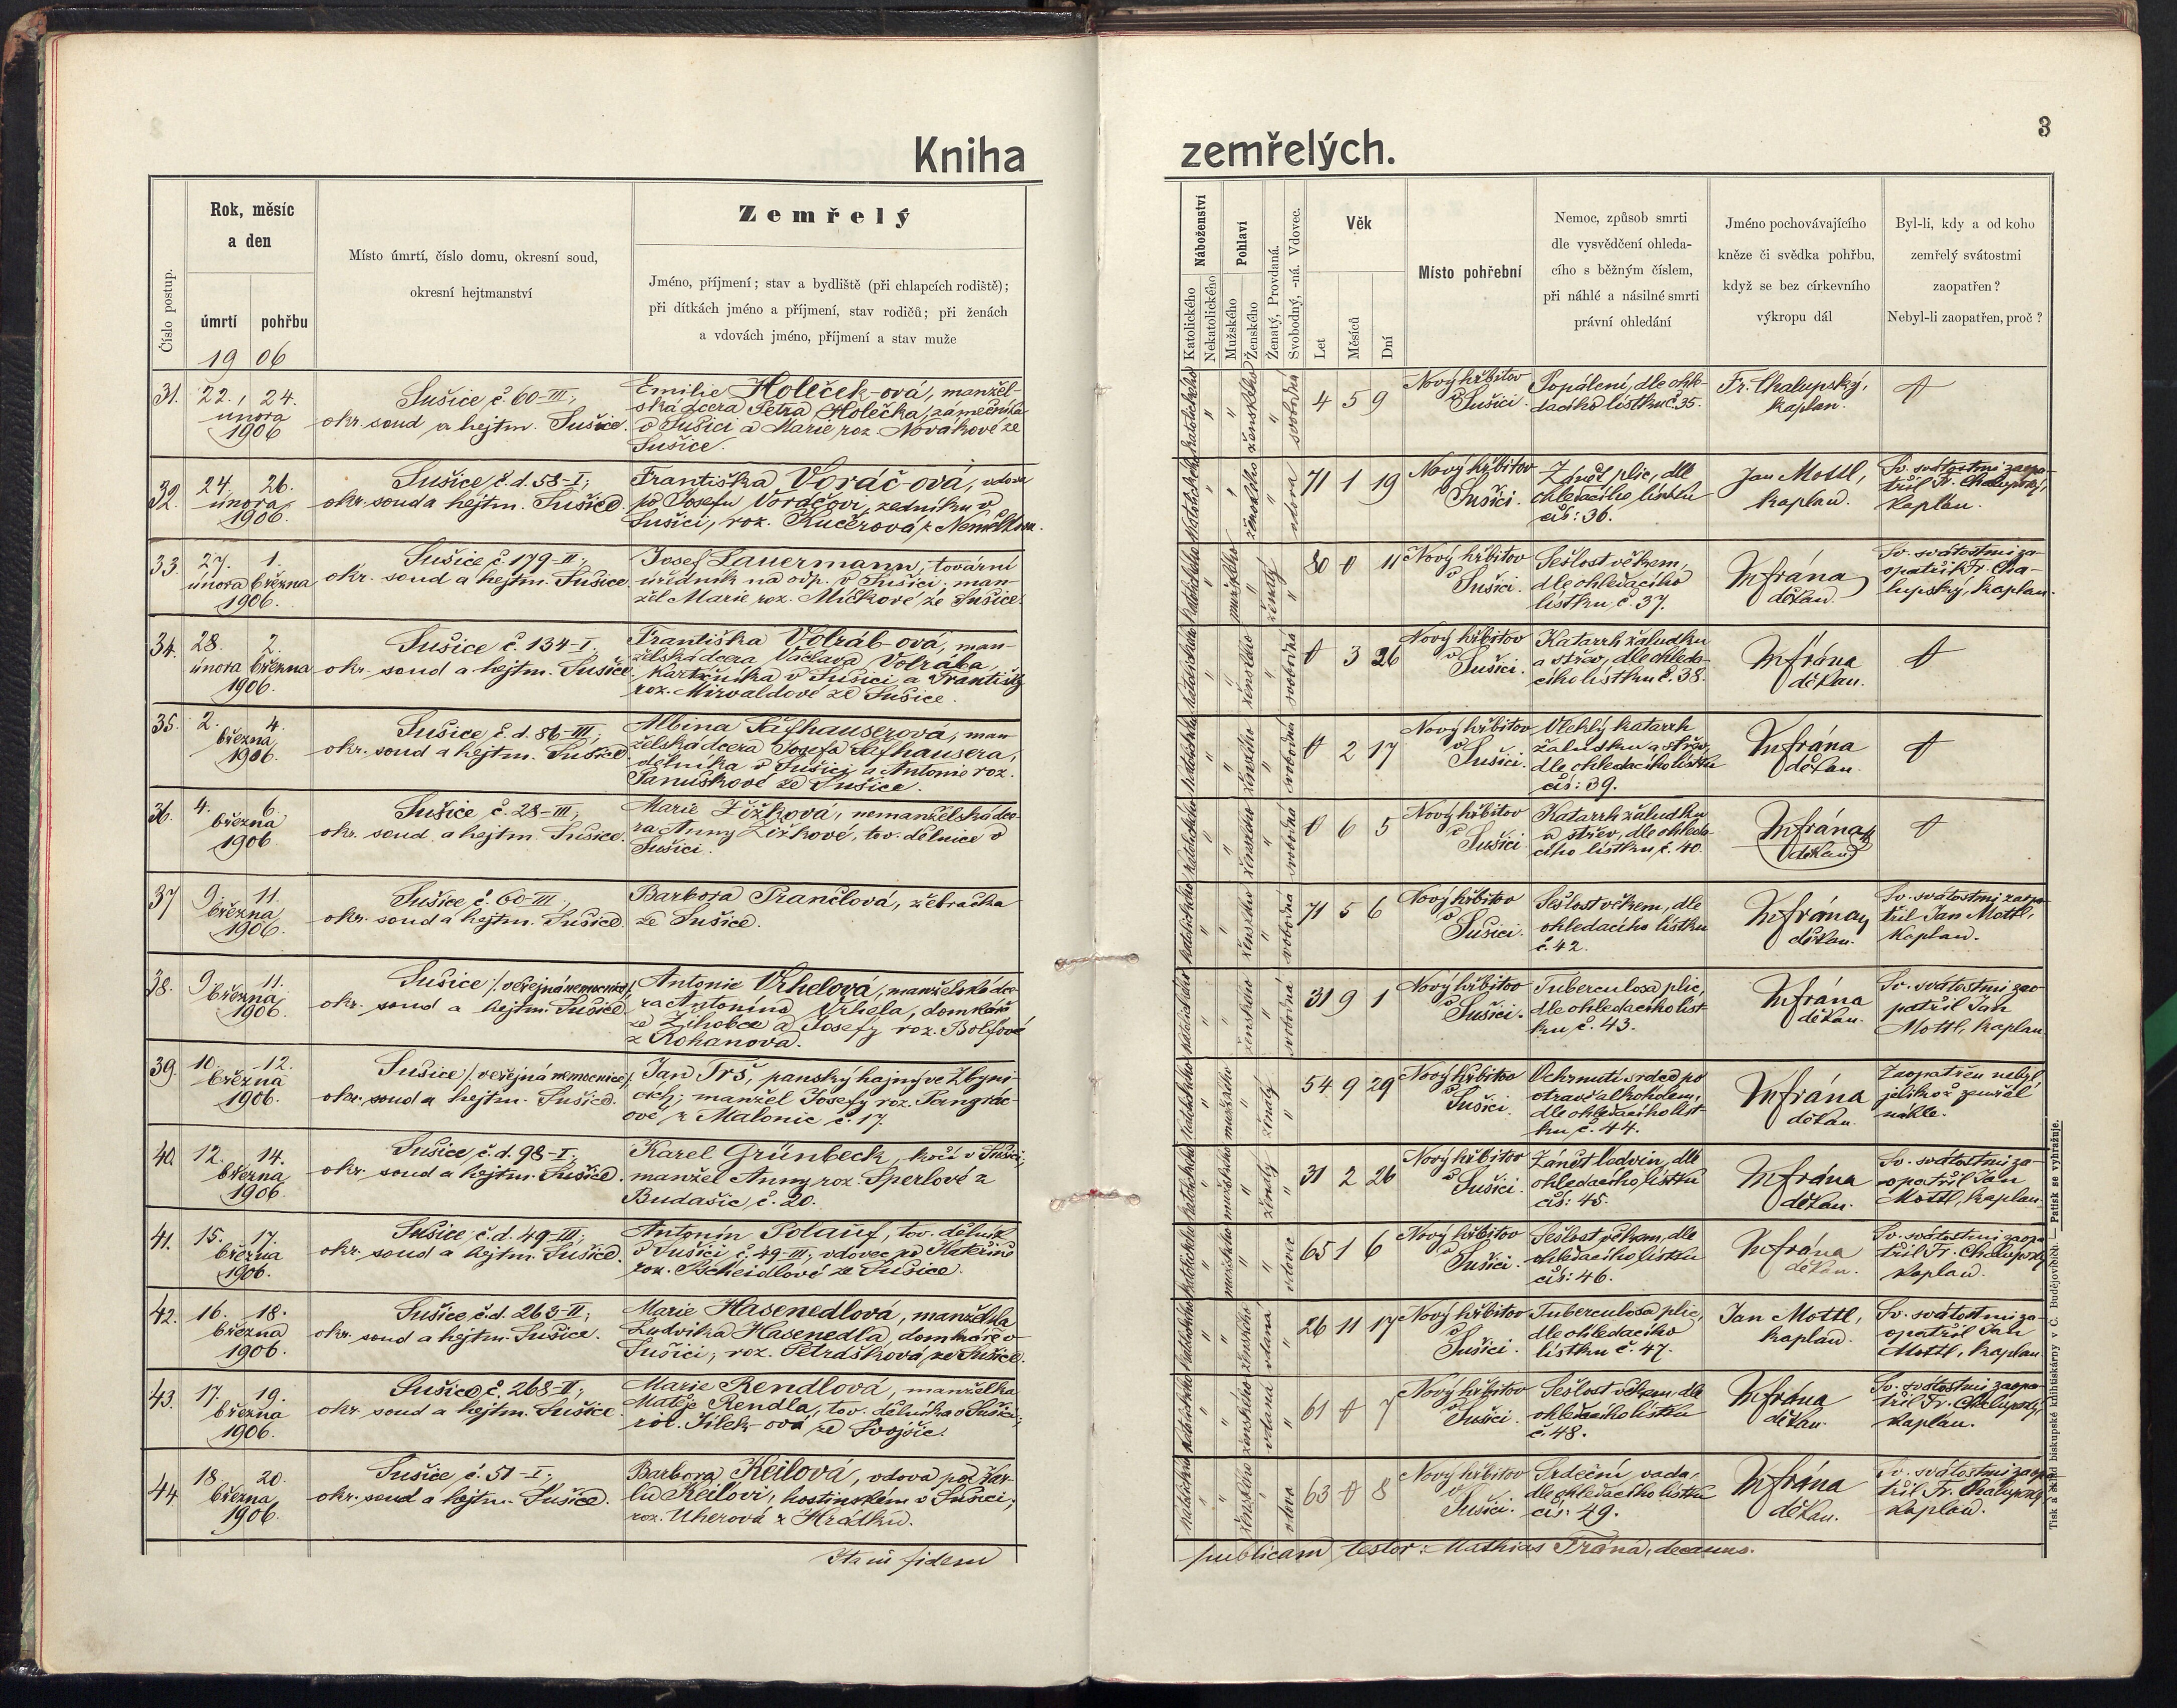 3
Kniha zemřelých.
Číslo postup.
Rok, měsíc
a den
úmrtí
pohřbu
1906
Místo úmrtí, číslo domu, okresní soud,
okresní hejtmanství
Zemřelý
Jméno, příjmení; stav a bydliště (při chlapcích rodiště);
při dítkách jméno a příjmení, stav rodičů; při ženách
a vdovách jméno, příjmení a stav muže
Náboženství
Katolického
Nekatolického
Pohlaví
Mužského
Ženského
Ženatý, Provdaná.
Svobodný, -ná. Vdovec.
Věk
Let
Měsíců
Dní
Místo pohřební
Nemoc, způsob smrti
dle vysvědčení ohleda-
cího s běžným číslem,
při náhlé a násilné smrti
právní ohledání
Jméno pochovávajícího
kněze či svědka pohřbu,
když se bez církevního
výkropu dál
Byl-li, kdy a od koho
zemřelý svátostmi
zaopatřen?
Nebyl-li zaopatřen, proč?
31. 22. 24.
února
1906
Sušice č. 60-III;
okr. soud a hejtm. Sušice.
Emilie Holeček-ová, manžel-
ská dcera Petra Holečka, zámečníka
v Sušici a Marie roz. Novákové ze
Sušice.
katolického " " ženského " svobodná
4 5 9
Nový hřbitov
v Sušici.
Popálení, dle ohle-
dacího lístku č. 35.
Fr. Chalupský,
kaplan.
0
32. 24. 26.
února
1906.
Sušice č. d. 58-I;
okr. soud a hejtm. Sušice.
Františka Voráč-ová, vdova
po Josefu Voráčovi, zedníku v
Sušici, roz. Kučerová z
katolického " " ženského " vdova
71 1 19
Nový hřbitov
v Sušici.
Zánět plic, dle
ohledacího lístku
čís: 36.
Jan Mottl,
kaplan.
Sv. svátostmi zaopa-
třil Fr. Chalupský,
kaplan.
33. 27. 1.
února března
1906.
Sušice č. 179-II;
okr. soud a hejtm. Sušice
Josef Lauermann, tovární
úředník na odp. v Sušici; man-
žel Marie roz. Míčkové ze Sušice.
katolického " mužského " ženatý "
80 0 11
Nový hřbitov
v Sušici.
Sešlost věkem,
dle ohledacího
lístku č. 37.
M Frána
děkan.
Sv. svátostmi za-
opatřil Fr. Cha-
lupský, kaplan.
34. 28. 2.
února března
1906.
Sušice č. 134-I;
okr. soud a hejtm. Sušice
Františka Volráb-ová, man-
želská dcera Václava Volrába,
kartáčníka v Sušici a Františky
roz. Mirvaldové ze Sušice.
katolického " " ženského " svobodná
0 3 26
Nový hřbitov
v Sušici.
Katarrh žaludku
a střev, dle ohleda-
cího lístku č. 38.
M Frána
děkan.
0
35. 2. 4.
března
1906.
Sušice č. d. 86-III;
okr. soud a hejtm. Sušice
Albina man-
želská dcera Josefa
dělníka v Sušici a Antonie roz.
Januškové ze Sušice.
katolického " " ženského " svobodná
0 2 17
Nový hřbitov
v Sušici.
Vleklý katarrh
žaludku a střev,
dle ohledacího lístku
čís: 39.
M Frána
děkan.
0
36. 4. 6.
března
1906
Sušice č. 28-III;
okr. soud a hejtm. Sušice.
Marie Žižková, nemanželská dce-
ra Anny Žižkové, tov. dělnice v
Sušici.
katolického " " ženského " svobodná
0 6 5
Nový hřbitov
v Sušici
Katarrh žaludku
a střev, dle ohleda-
cího lístku č. 40.
M Frána
děkan
0
37 9. 11.
března
1906.
Sušice č. 60-III;
okr. soud a hejtm. Sušice.
Barbora Prančlová, žebračka
ze Sušice.
katolického " " ženského " svobodná
71 5 6
Nový hřbitov
v Sušici.
Sešlost věkem, dle
ohledacího lístku
č. 42.
M Frána
děkan.
Sv. svátostmi zaopa-
třil Jan Mottl,
kaplan.
38. 9. 11.
března
1906.
Sušice /: veřejná nemocnice :/
okr. soud a hejtm. Sušice
Antonie Vrhelová, manželská dce-
ra Antonína Vrhela, domkáře
ze Žihobce a Josefy roz.
z Rohanova.
katolického " " ženského " svobodná
31 9 1
Nový hřbitov
v Sušici.
Tuberculosa plic,
dle ohledacího líst-
ku č. 43.
M Frána
děkan.
Sv. svátostmi zao-
patřil Jan
Mottl, kaplan
39. 10. 12.
března
1906.
Sušice /: veřejná nemocnice :/
okr. soud a hejtm. Sušice.
Jan Trš, panský hajný ve Zbyni-
cích; manžel Josefy roz.
z Malonic č. 17.
katolického " mužského " ženatý "
54 9 29
Nový hřbitov
v Sušici.
Ochrnutí srdce po
otravě alkoholem,
dle ohledacího líst-
ku č. 44.
M Frána
děkan.
Zaopatřen nebyl,
jelikož zemřel
náhle.
40. 12. 14.
března
1906.
Sušice č. d. 98-I;
okr. soud a hejtm. Sušice.
Karel Grünbeck, kočí v Sušici,
manžel Anny roz. Šperlové z
Budašic č. 20.
katolického " mužského " ženatý "
31 2 26
Nový hřbitov
v Sušici.
Zánět ledvin, dle
ohledacího lístku
čís: 45.
M Frána
děkan.
Sv. svátostmi za-
opatřil Jan
Mottl, kaplan.
41. 15. 17.
března
1906.
Sušice č. d. 49-III;
okr. soud a hejtm. Sušice.
Antonín tov. dělník
v Sušici č. 49-III; vdovec po Kateřině
roz. ze Sušice.
katolického " mužského " " vdovec
65 1 6
Nový hřbitov
v Sušici.
Sešlost věkem, dle
ohledacího lístku
čís: 46.
M Frána
děkan.
Sv. svátostmi zaopa-
třil Fr. Chalupský
kaplan.
42. 16. 18.
března
1906.
Sušice č. d. 263-II;
okr. soud a hejtm. Sušice.
Marie Hasenedlová, manželka
Ludvíka Hasenedla, domkáře v
Sušici, roz. Petrášková ze Sušice.
katolického " " ženského vdaná "
26 11 17
Nový hřbitov
v Sušici.
Tuberculosa plic,
dle ohledacího
lístku č. 47.
Jan Mottl,
kaplan.
Sv. svátostmi za-
opatřil Jan
Mottl, kaplan
43. 17. 19.
března
1906.
Sušice č. 268-II;
okr. soud a hejtm. Sušice
Marie Rendlová, manželka
Matěje Rendla, tov. dělníka v Sušici;
roz. Jílek-ová ze Svojšic.
katolického " " ženského vdaná "
61 0 7
Nový hřbitov
v Sušici.
Sešlost věkem, dle
ohledacího lístku
č. 48.
M Frána
děkan.
Sv. svátostmi zaopa-
třil Fr. Chalupský,
kaplan.
44 18. 20.
března
1906.
Sušice č. 51-I;
okr. soud a hejtm. Sušice.
Barbora Keilová, vdova po Kar-
lu Keilovi, hostinském v Sušici;
roz. Uherová z Hrádku.
katolického " " ženského " vdova
63 0 8
Nový hřbitov
v Sušici.
Srdeční vada,
dle ohledacího lístku
čís: 49.
M Frána
děkan.
Sv. svátostmi zaopa-
třil Fr. Chalupský,
kaplan.
Ita in fidem publicam testor: Mathias Frána, decanus.
Tisk a sklad biskupské knihtiskárny v Č. Budějovicích. — Patisk se vyhražuje.